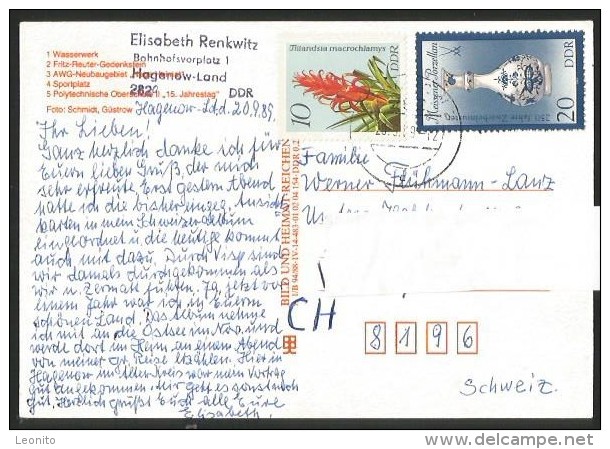 Elisabeth Renkwitz
Bahnhofsvorplatz 1
Hagenow-Land
282
DDR
1 Wasserwerk
2 Fritz-Reuter-Gedenkstein
3 AWG-Neubaugebiet
4 Sportplatz
5 Polytechnische Oberschule "15. Jahrestag"
Foto: Schmidt, Güstrow
Tillandsia macrochlamys
DDR
10
Meissner Porzellan
250 Jahre Zwiebelmuster
DDR
20
Hagenow-Ld. d. 20.9.89
Ihr Lieben!
Ganz herzlich danke ich für
Euern lieben Gruß, der mich
sehr erfreute. Erst gestern Abend
hatte ich die bisherigen Ansichts
karten in mein Schweizeralbum
eingeordnet u. die heutige kommt
auch mit dazu. Durch Visp sind
wir damals durchgekommen als
wir n. Zermatt fuhren. Ja, jetzt vor
einem Jahr war ich in Euerm
schönen Land. Das Album nehme
ich mit an die Ostsee im Nov. und
werde dort im Heim an einem Abend
von meiner gr. Reise erzählen. Hier in
Hagenow im Kreis war mein Vortrag
gut angekommen. Mir geht es sonst auch
gut. Herzlich grüßt Euch alle Eure
Elisabeth.
BILD UND HEIMAT REICHENBACH
Familie
Werner Flühmann-Lanz
CH
8196
Schweiz.
Leonito
www.delcampe.net